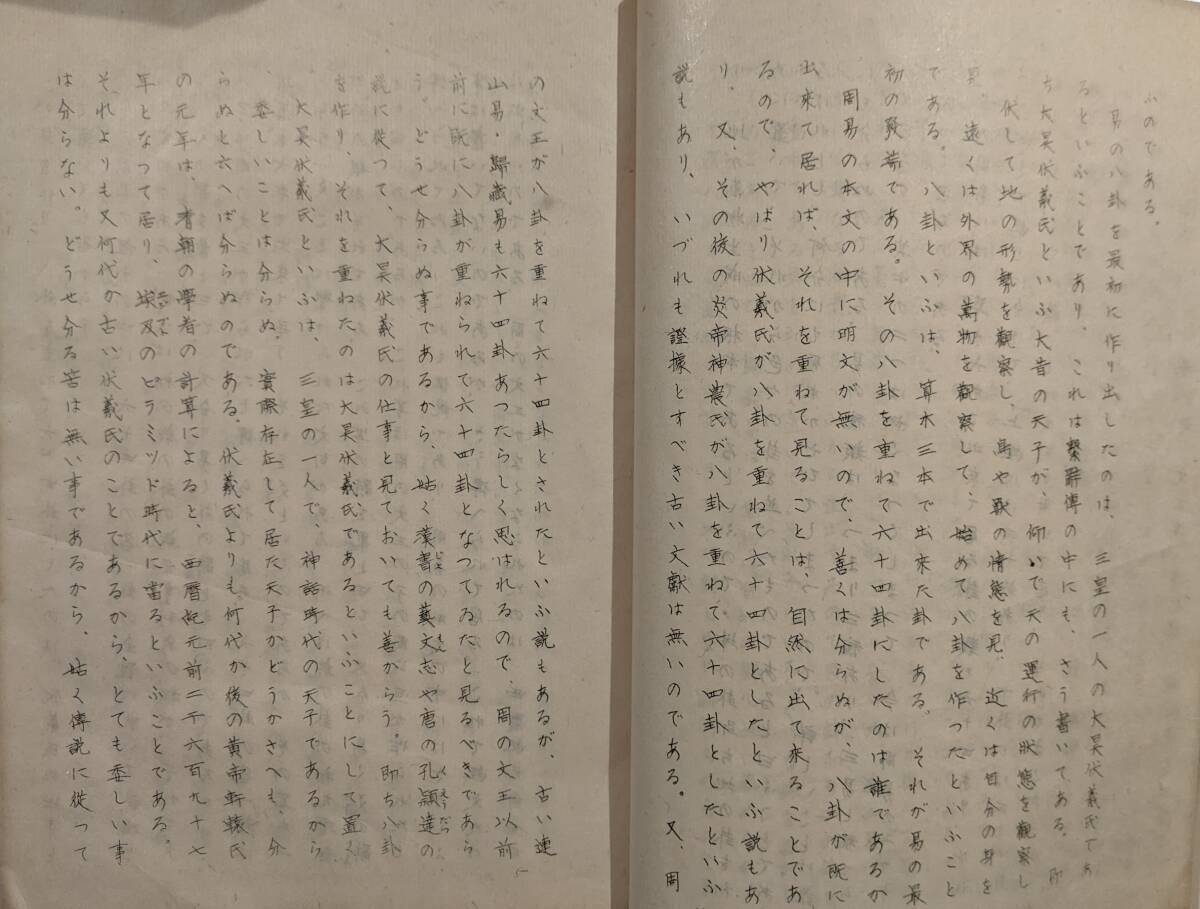 ふのである。
易の八卦を最初に作り出したのは、三皇の一人の大昊伏羲氏であ
るといふことであり、これは繋辭傳の中にも、さう書いてある。即
ち大昊伏羲氏といふ大昔の天子が、仰いで天の運行の狀態を觀察し
伏して地の形勢を觀察し、鳥や獸の情態を見、近くは自分の身を
見、遠くは外界の萬物を觀察して、始めて八卦を作つたといふこと
である。八卦といふは、算木三本で出來た卦である。それが易の最
初の發端である。その八卦を重ねて六十四卦にしたのは誰であるか
周易の本文の中に明文が無いので、善くは分らぬが、八卦が既に
出來て居れば、それを重ねて見ることは、自然に出て來ることであ
るので、やはり伏羲氏が八卦を重ねて六十四卦としたといふ説もあ
り。又、その後の炎帝神農氏が八卦を重ねて六十四卦としたといふ
説もあり、いづれも證據とすべき古い文獻は無いのである。又、周
の文王が八卦を重ねて六十四卦とされたといふ説もあるが、古い連
山易・歸藏易も六十四卦あつたらしく思はれるので、周の文王以前
前に既に八卦が重ねられて六十四卦となつてゐたと見るべきであら
う。どうせ分らぬ事であるから、姑く漢書の藝文志や唐の孔穎達の
説に從つて、大昊伏羲氏の仕事と見ておいても善からう。即ち八卦
を作り、それを重ねたのは大昊伏羲氏であるといふことにして置く
大昊伏羲氏といふは、三皇の一人で、神話時代の天子であるから
、委しいことは分らぬ。實際存在して居た天子かどうかさへも、分
らぬと云へば分らぬのである。伏羲氏よりも何代か後の黄帝軒轅氏
の元年は、清朝の學者の計算によると、西曆紀元前二千六百九十七
年となつて居り、埃及のピラミッド時代に當るといふことである。
それよりも又何代か古い伏羲氏のことであるから、とても委しい事
は分らない。どうせ分る筈は無い事であるから、姑く傳説に從つて